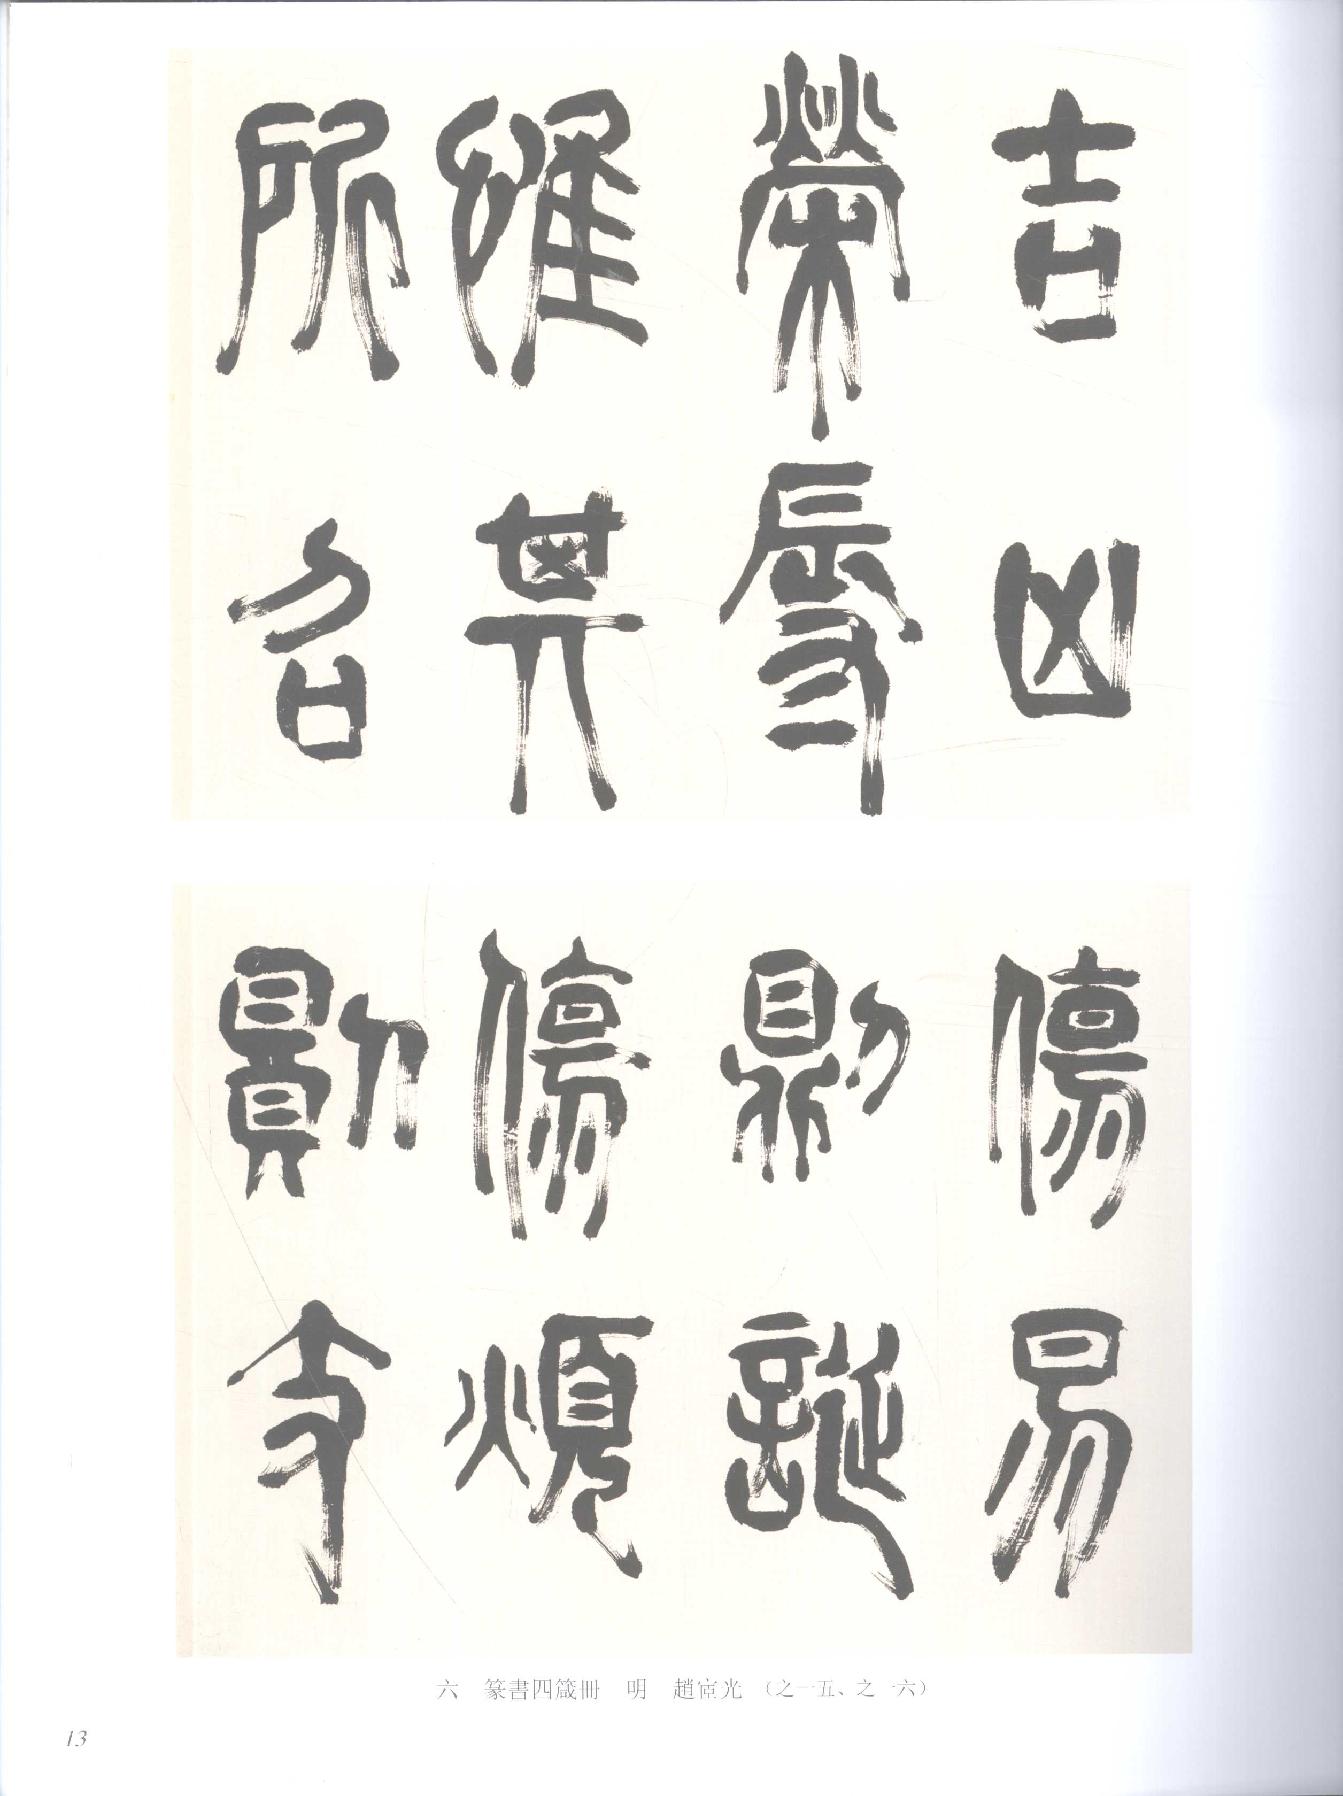 吉凶
榮辱
惟其
所召
傷易
則誕
傷煩
則支
六 篆書四箴冊 明 趙宧光 （之一五、之一六）
13